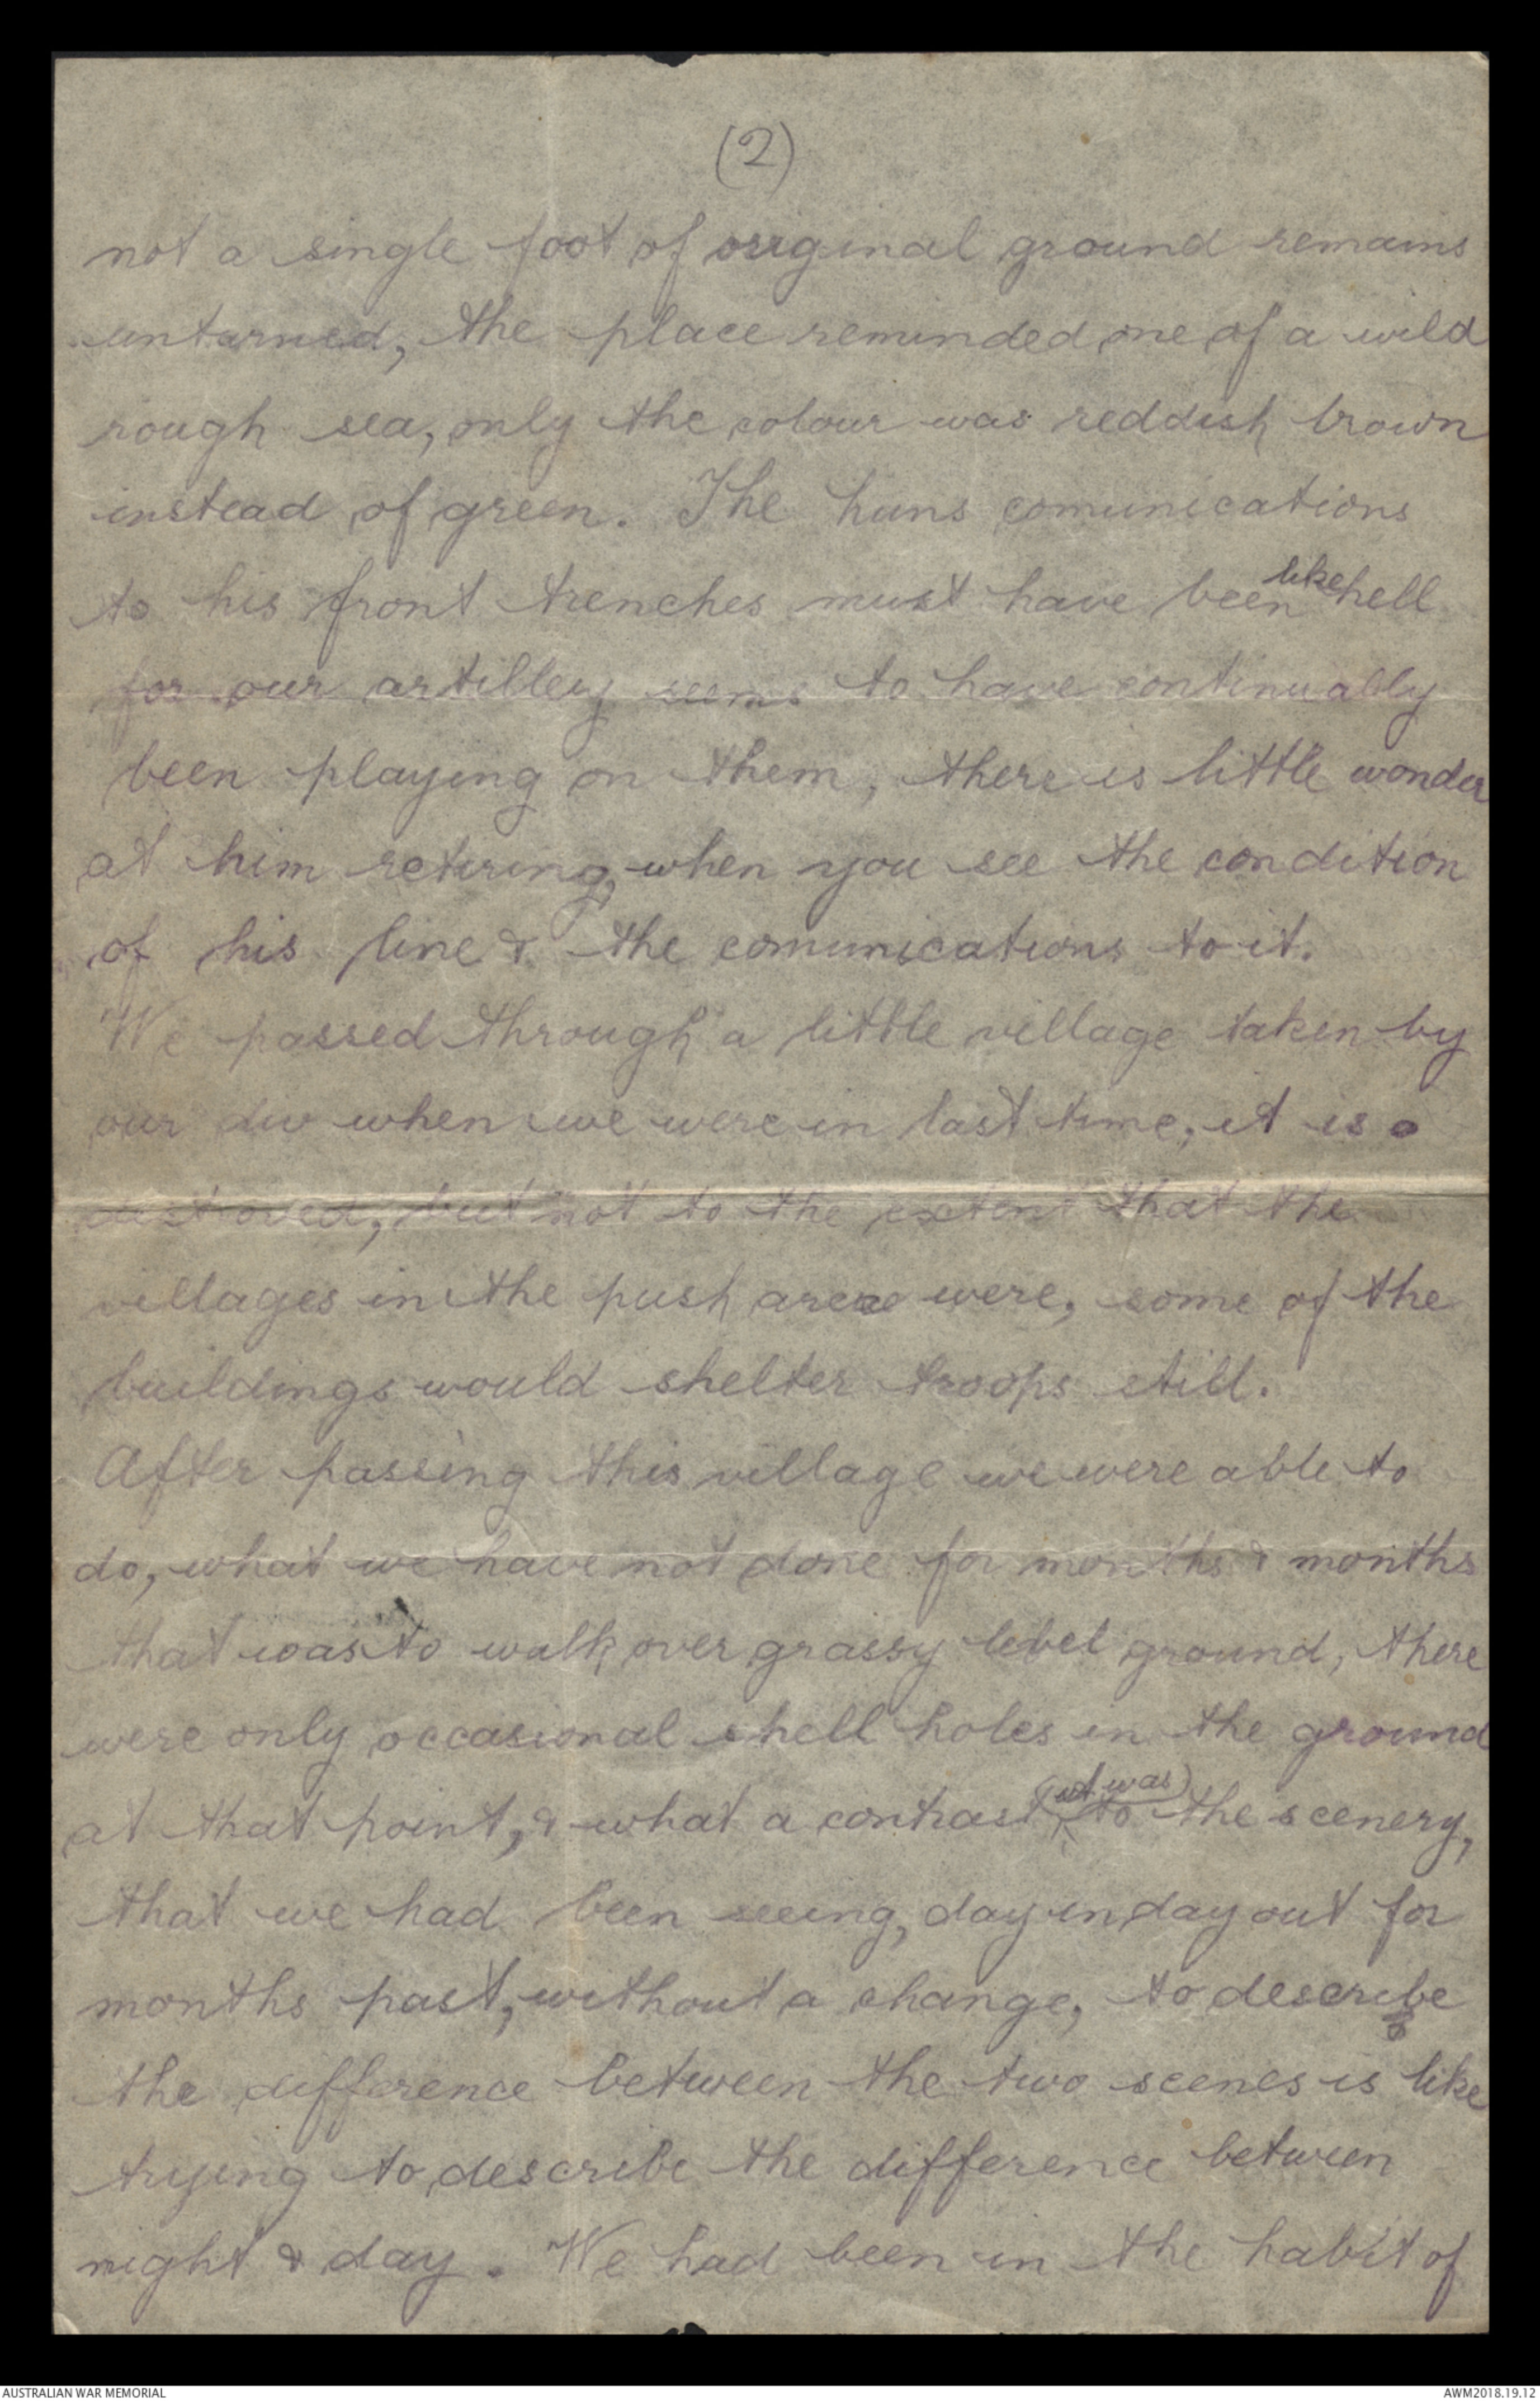 (2)
not a single foot of original ground remains
unturned, the place reminded one of a wild
rough sea, only the colour was reddish brown
instead of green. The huns comunications
to his front trenches must have been like hell
for our artillery seems to have continually
been playing on them, there is little wonder
at him retiring, when you see the condition
of his line & the comunications to it.
We passed through a little village taken by
our div when we were in last time, it is a
but not to the extent that the
villages in the push area were, some of the
buildings would shelter troops still.
After passing this village we were able to
do, what we have not done for months & months
that was to walk over grassy level ground, there
were only occasional shell holes in the ground
at that point, & what a contrast (it was) to the scenery,
that we had been seeing, day in day out for
months past, without a change, to describe
the difference between the two scenes is like
trying to describe the difference between
night & day. We had been in the habit of
AUSTRALIAN WAR MEMORIAL
AWM2018.19.12